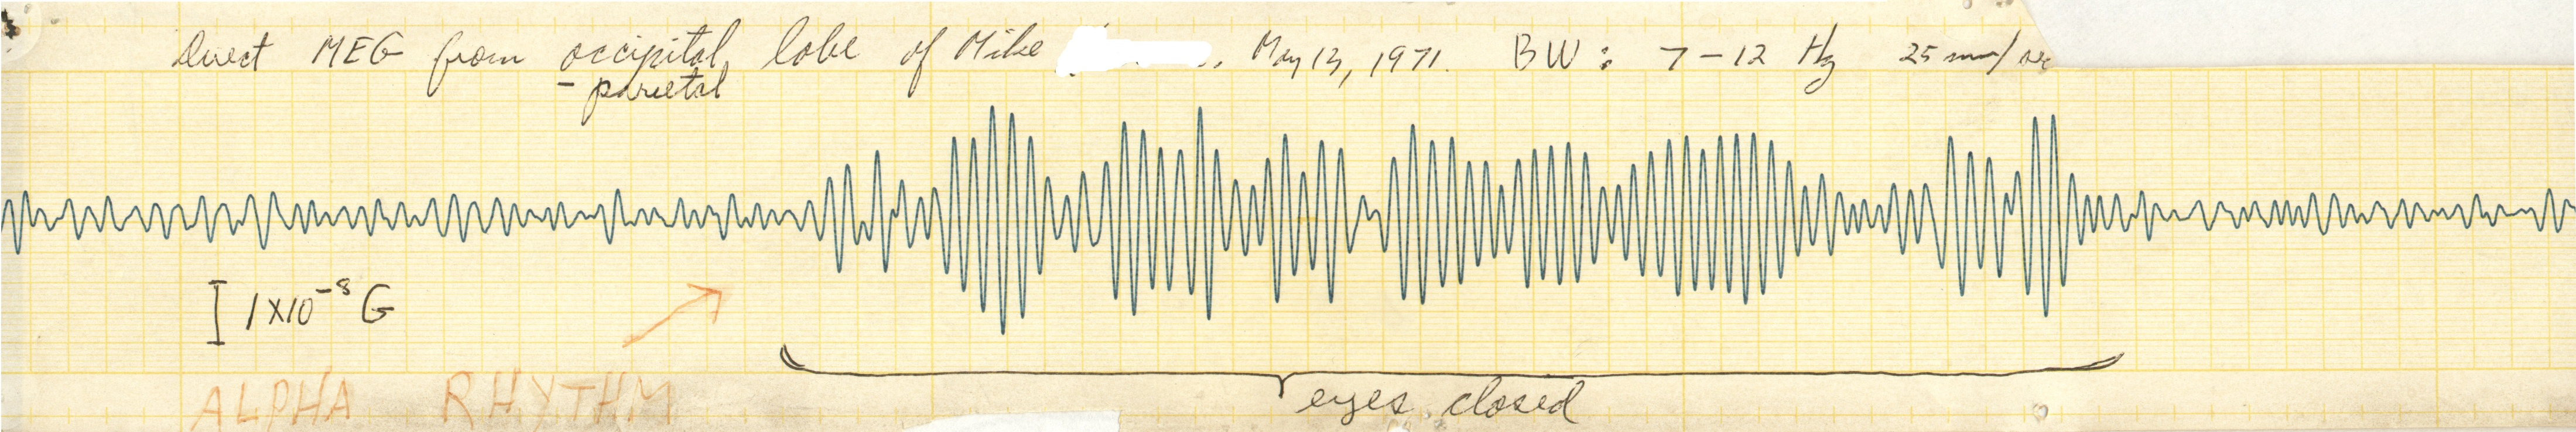 Direct MEG from occipital lobe of Mike . May 13, 1971. BW: 7-12 Hz 25 mm/sec
- parietal
1X10⁻⁸ G
ALPHA RHYTHM
eyes closed